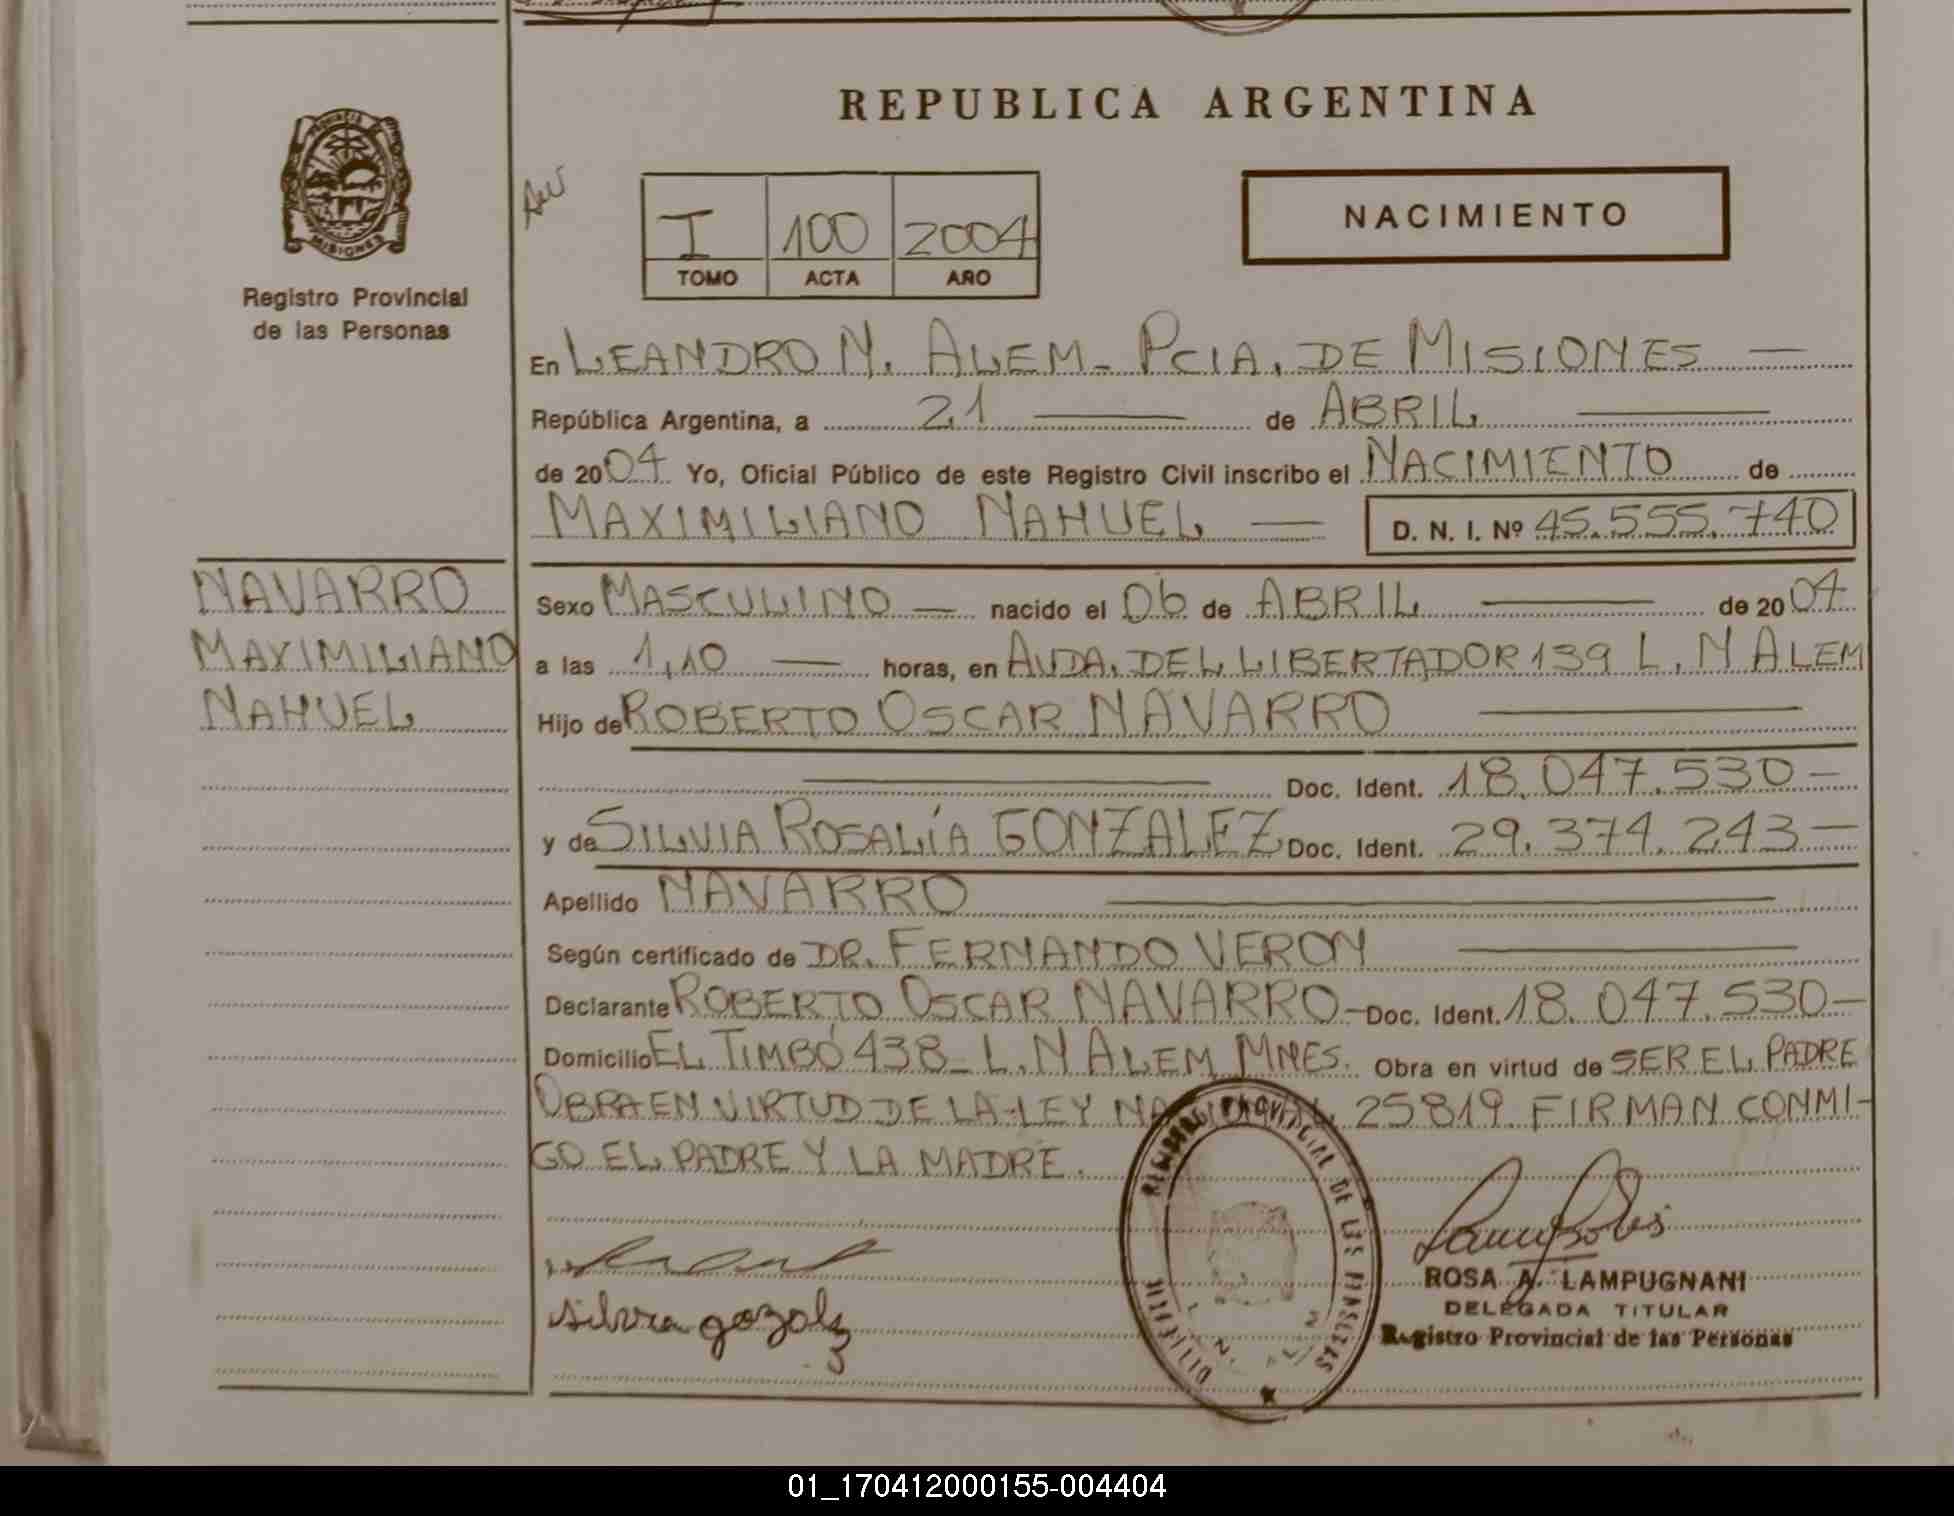 REPUBLICA ARGENTINA
PROVINCIA DE
MISIONES
Registro Provincial
de las Personas
I 100 2004
TOMO ACTA AÑO
NACIMIENTO
En LEANDRO N. ALEM - PCIA. DE MISIONES —
República Argentina, a 21 — de ABRIL —
de 2004 Yo, Oficial Público de este Registro Civil inscribo el NACIMIENTO de
MAXIMILIANO NAHUEL — D. N. I. Nº 45.555.740
NAVARRO
MAXIMILIANO
NAHUEL
Sexo MASCULINO — nacido el 06 de ABRIL — de 2004
a las 1,10 — horas, en AVDA. DEL LIBERTADOR 139 L. N ALEM
Hijo de ROBERTO OSCAR NAVARRO —
— Doc. Ident. 18.047.530 —
y de SILVIA ROSALÍA GONZALEZ Doc. Ident. 29.374.243 —
Apellido NAVARRO —
Según certificado de DR. FERNANDO VERON —
Declarante ROBERTO OSCAR NAVARRO — Doc. Ident. 18.047.530 —
Domicilio EL TIMBÓ 438 - L. N ALEM MNES. Obra en virtud de SER EL PADRE
OBRA EN VIRTUD DE LA LEY NACIONAL 25819. FIRMAN CONMI-
GO EL PADRE Y LA MADRE.
REGISTRO PROVINCIAL DE LAS PERSONAS
MISIONES
silvia gozalz
ROSA A. LAMPUGNANI
DELEGADA TITULAR
Registro Provincial de las Personas
01_170412000155-004404